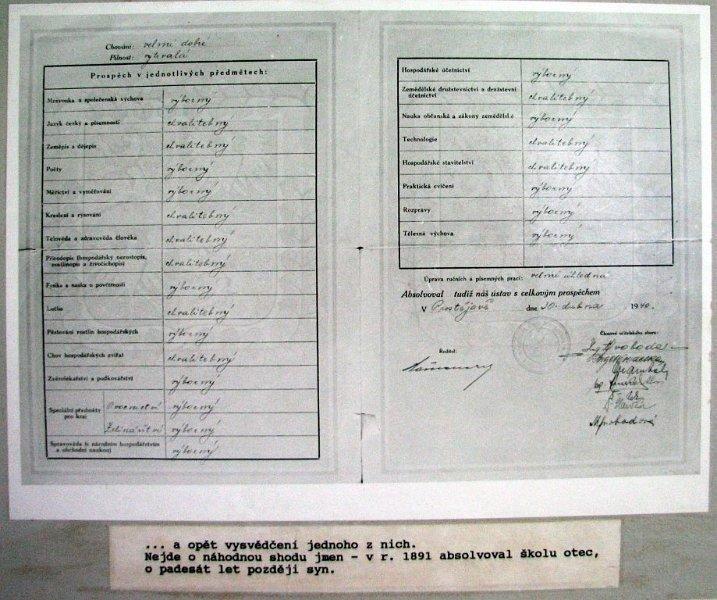 Chování: velmi dobré
Pilnost: vytrvalá
Prospěch v jednotlivých předmětech:
Mravouka a společenská výchova výborný
Jazyk český a písemnosti chvalitebný
Zeměpis a dějepis chvalitebný
Počty výborný
Měřictví a vyměřování výborný
Kreslení a rýsování chvalitebný
Tělověda a zdravověda člověka chvalitebný
Přírodopis (hospodářský nerostopis, rostlinopis a živočichopis) chvalitebný
Fysika a nauka o povětrnosti výborný
Lučba chvalitebný
Pěstování rostlin hospodářských výborný
Chov hospodářských zvířat chvalitebný
Zvěrolékařství a podkovářství výborný
Speciální předměty pro kraj Ovocnictví výborný
Zelinářství výborný
Spravověda (s národním hospodářstvím a obchodní naukou) výborný
Hospodářské účetnictví výborný
Zemědělské družstevnictví a družstevní účetnictví chvalitebný
Nauka občanská a zákony zemědělské výborný
Technologie chvalitebný
Hospodářské stavitelství chvalitebný
Praktická cvičení výborný
Rozpravy výborný
Tělesná výchova výborný
Úprava ručních a písemných prací: velmi úhledná
Absolvoval tudíž náš ústav s celkovým prospěchem
V Prostějově dne 30. dubna 1940.
Ředitel:
Členové učitelského sboru:
Ing. Svoboda
M. Svobodová
... a opět vysvědčení jednoho z nich.
Nejde o náhodnou shodu jmen - v r. 1891 absolvoval školu otec,
o padesát let později syn.